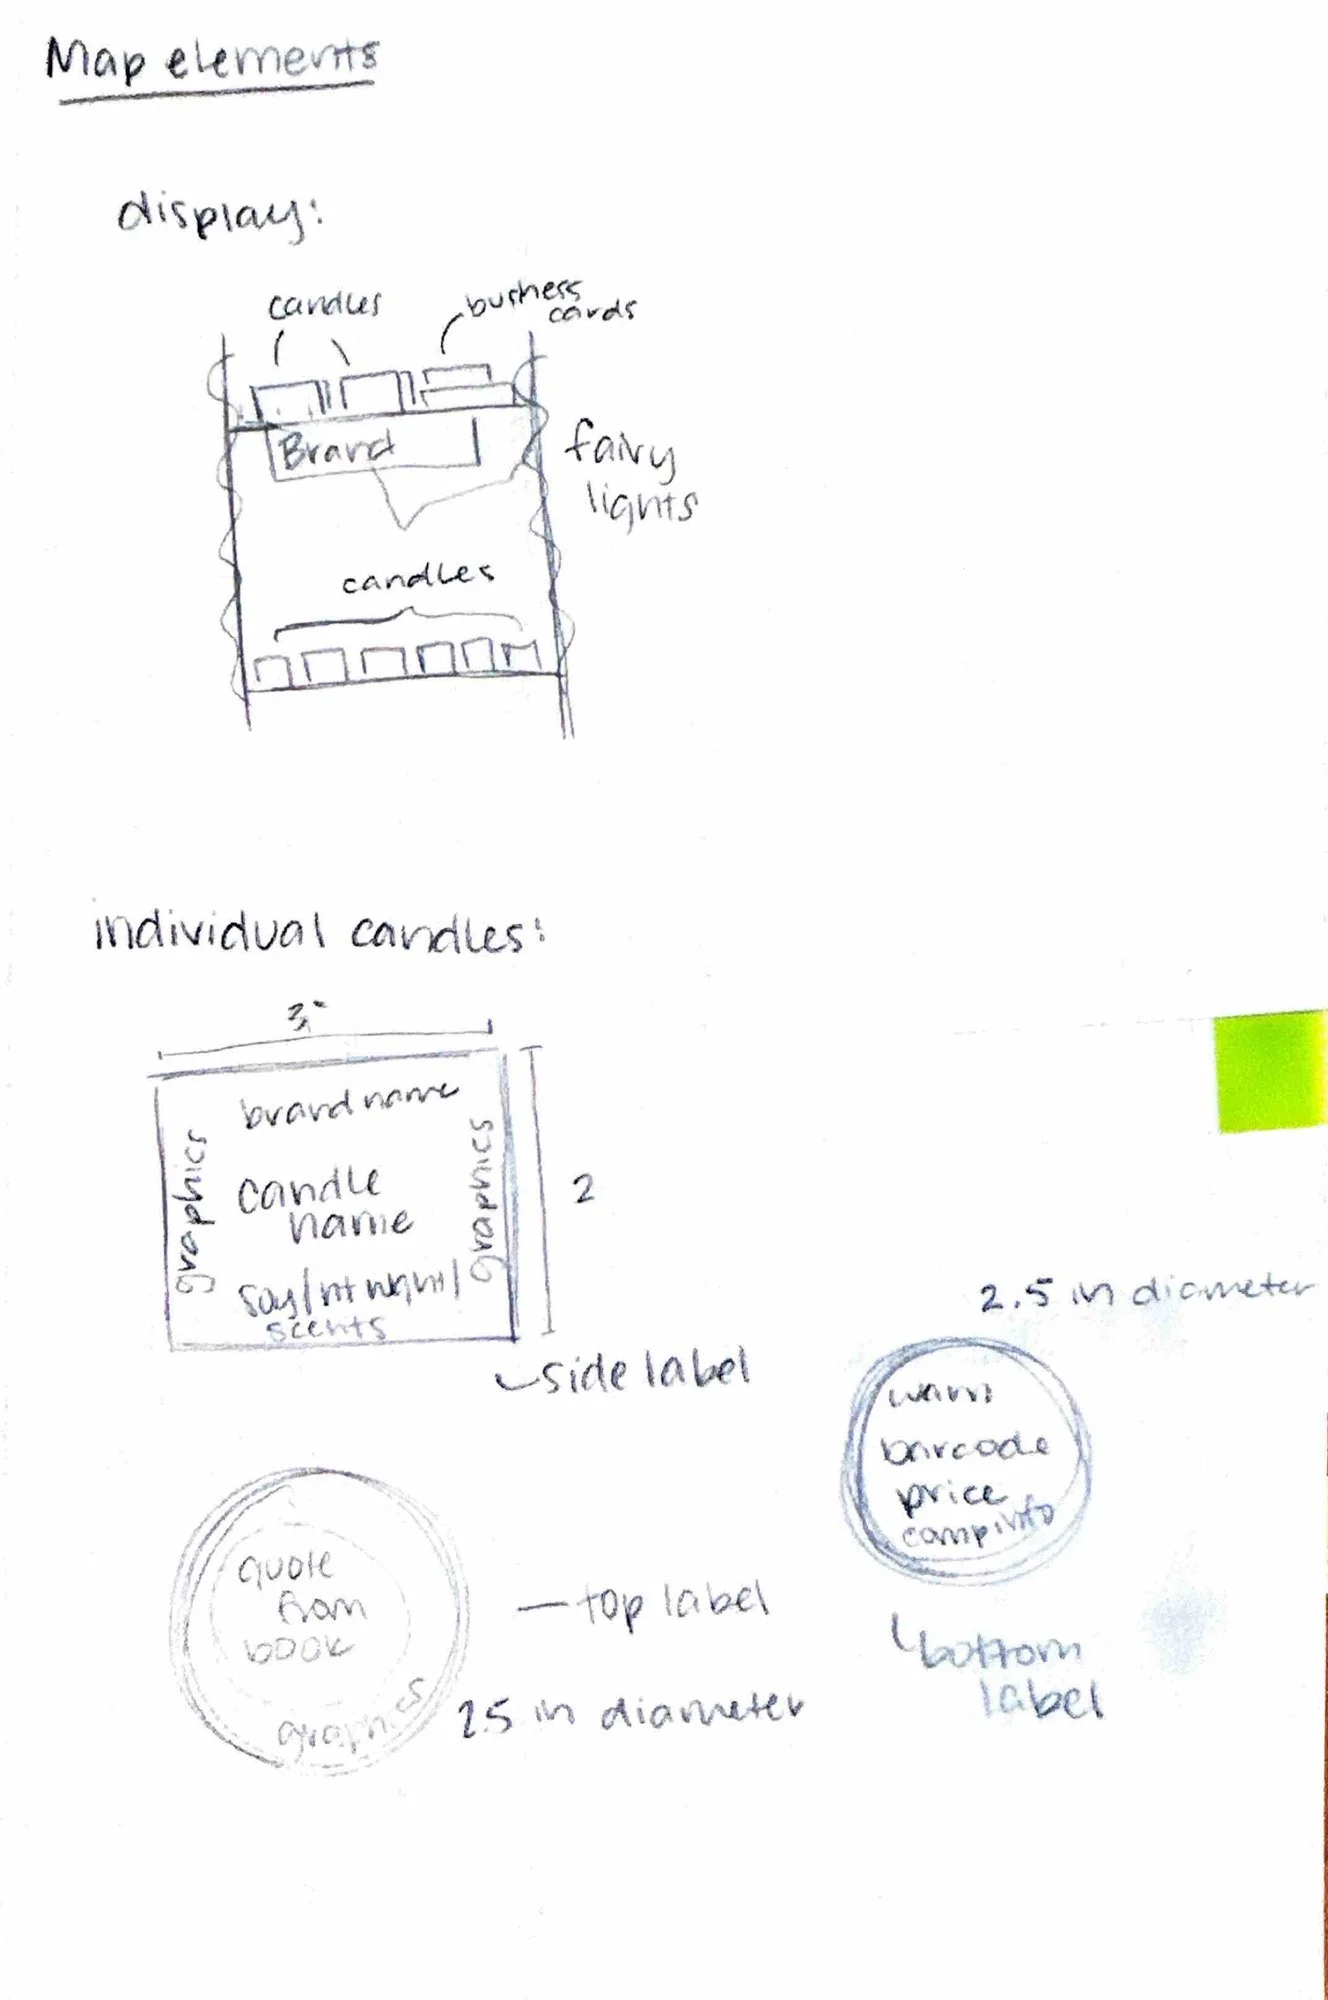 Map elements
display:
candles
business
cards
Brand
fairy
lights
candles
individual candles:
3"
brand name
graphics
candle
name
graphics
soy/nt wght/
scents
2
side label
2.5 in diameter
warn
barcode
price
comp info
bottom
label
quote
from
book
graphics
top label
2.5 in diameter